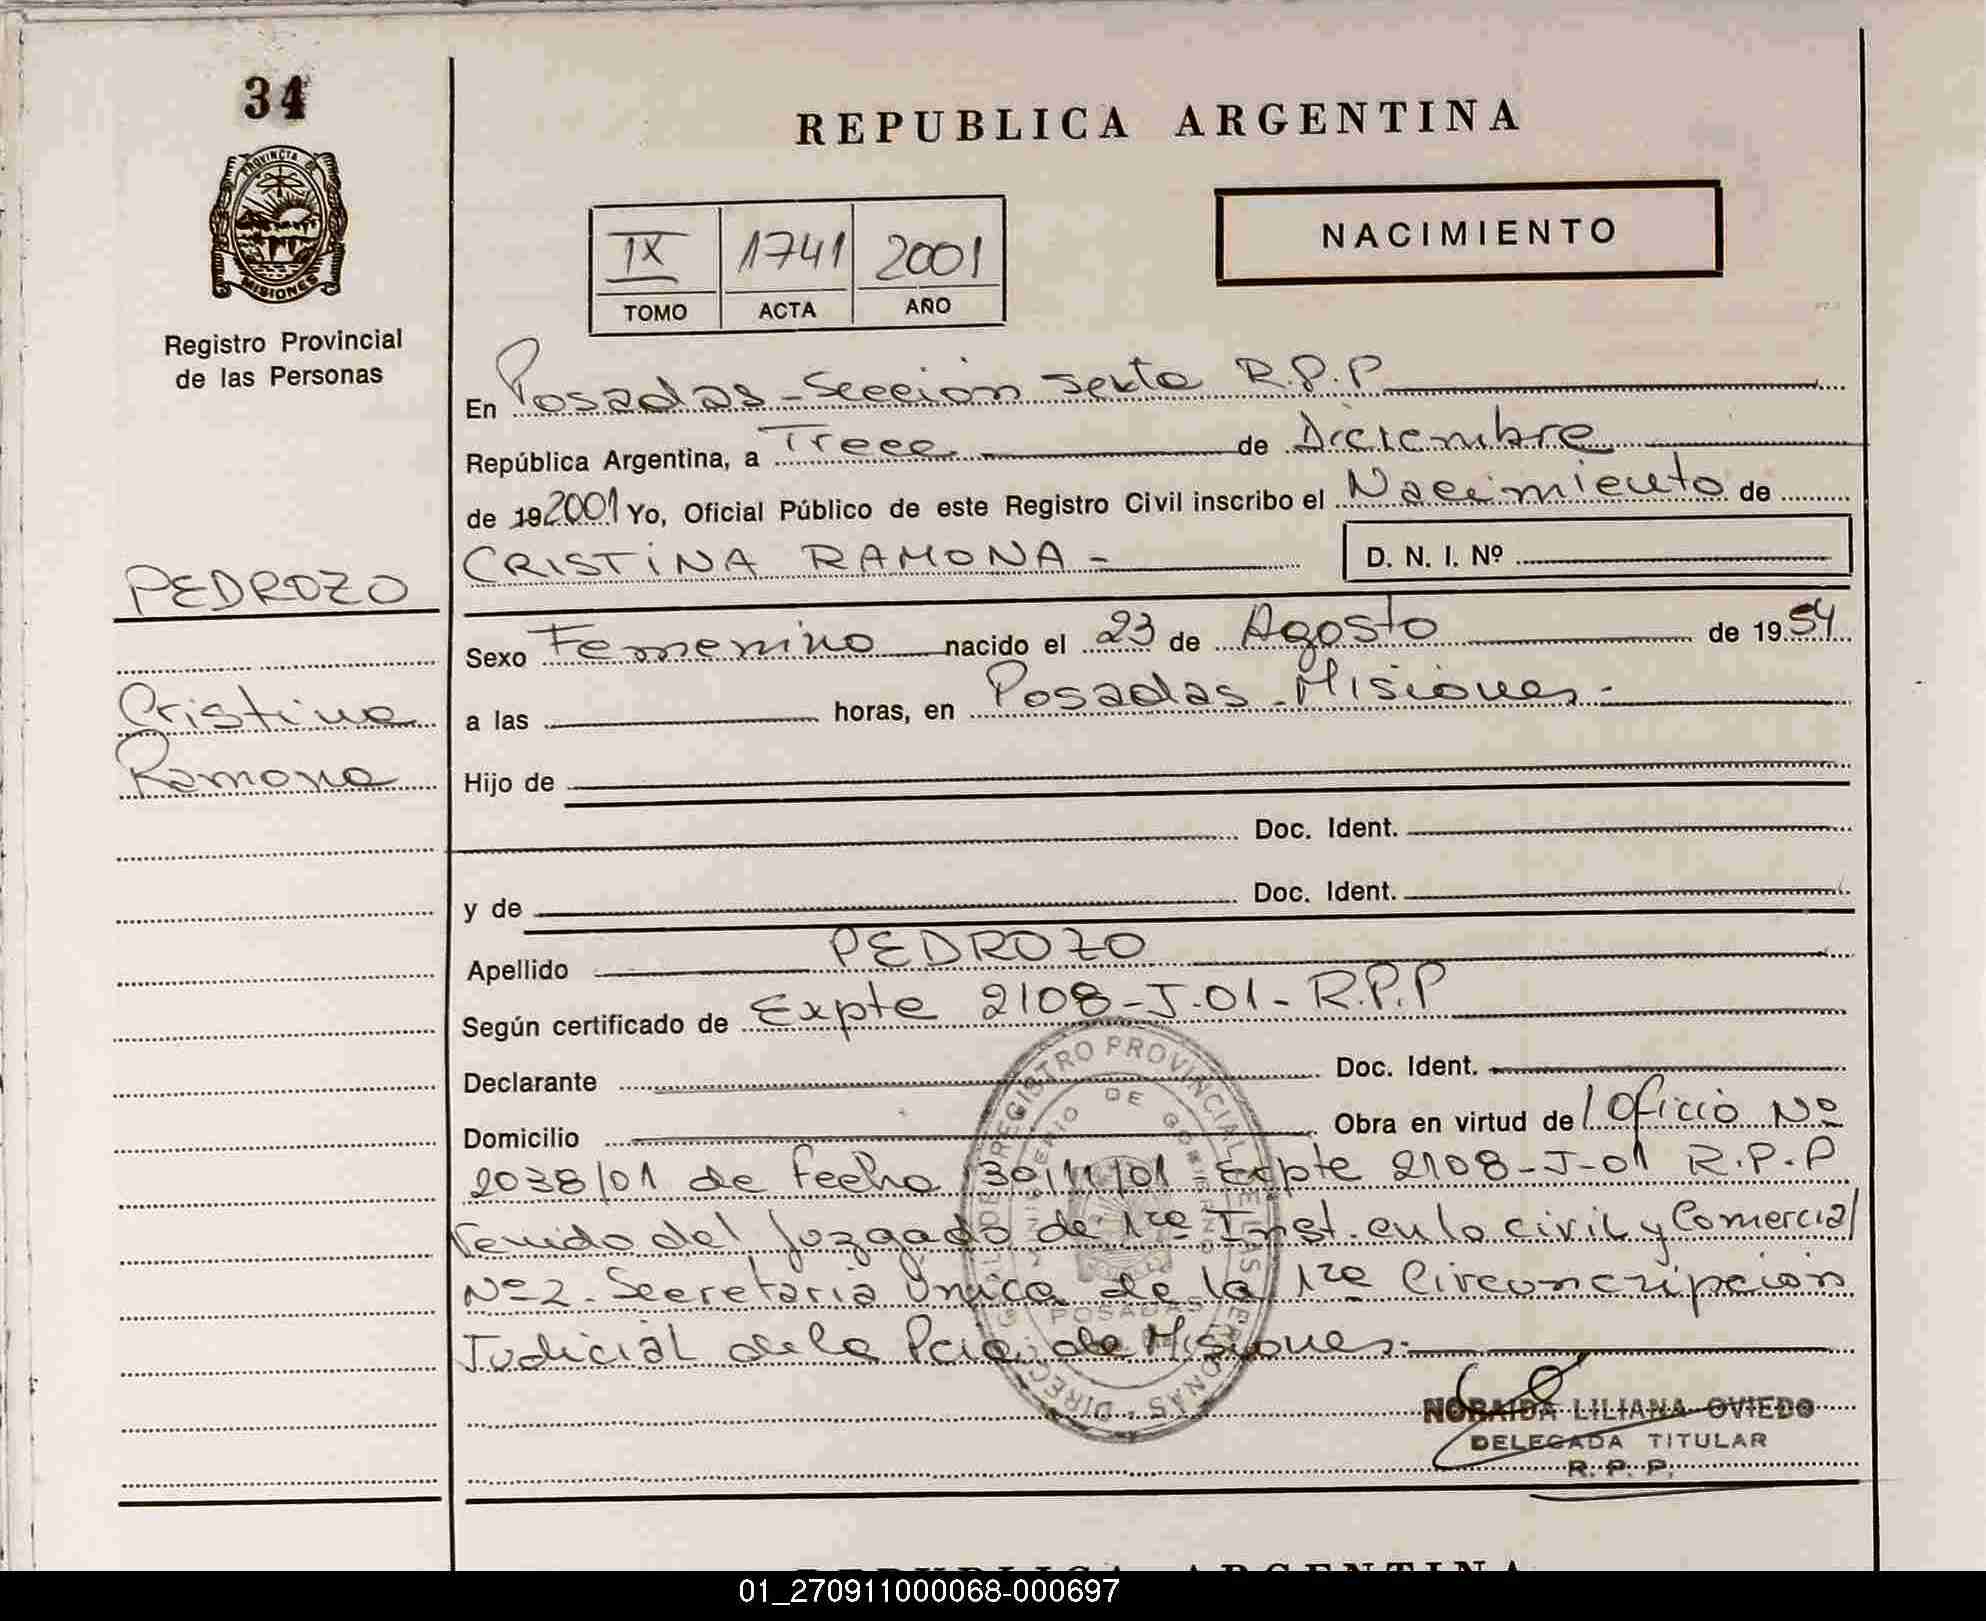 34
PROVINCIA DE
MISIONES
Registro Provincial
de las Personas
REPUBLICA ARGENTINA
IX 1741 2001
TOMO ACTA AÑO
NACIMIENTO
En Posadas - Sección sexta R.P.P
República Argentina, a Trece de Diciembre
de 19 2001 Yo, Oficial Público de este Registro Civil inscribo el Nacimiento de
CRISTINA RAMONA - D. N. I. Nº
PEDROZO
Cristina
Ramona
Sexo Femenino nacido el 23 de Agosto de 1954
a las horas, en Posadas - Misiones -
Hijo de
Doc. Ident.
y de Doc. Ident.
Apellido PEDROZO
Según certificado de Expte 2108-J-01- R.P.P
Declarante Doc. Ident.
Domicilio Obra en virtud de Oficio Nº
2038/01 de fecha 30/11/01 - Expte 2108-J-01 R.P.P
venido del Juzgado de 1ra Inst. en lo civil y Comercial
Nº2 - Secretaria Única de la 1ra Circoncripción
Judicial de la Pcia, de Misiones.-
NORAIDA LILIANA OVIEDO
DELEGADA TITULAR
R. P. P.
REPUBLICA ARGENTINA
01_270911000068-000697